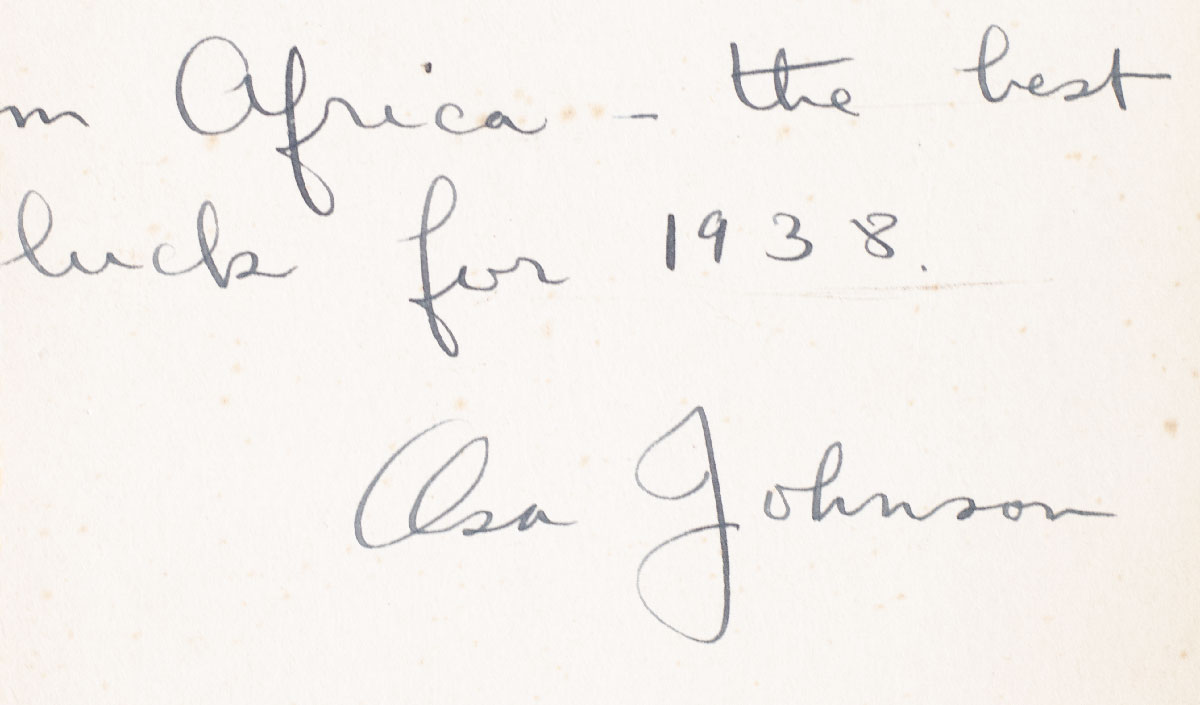 m Africa - the best
luck for 1938.
Osa Johnson